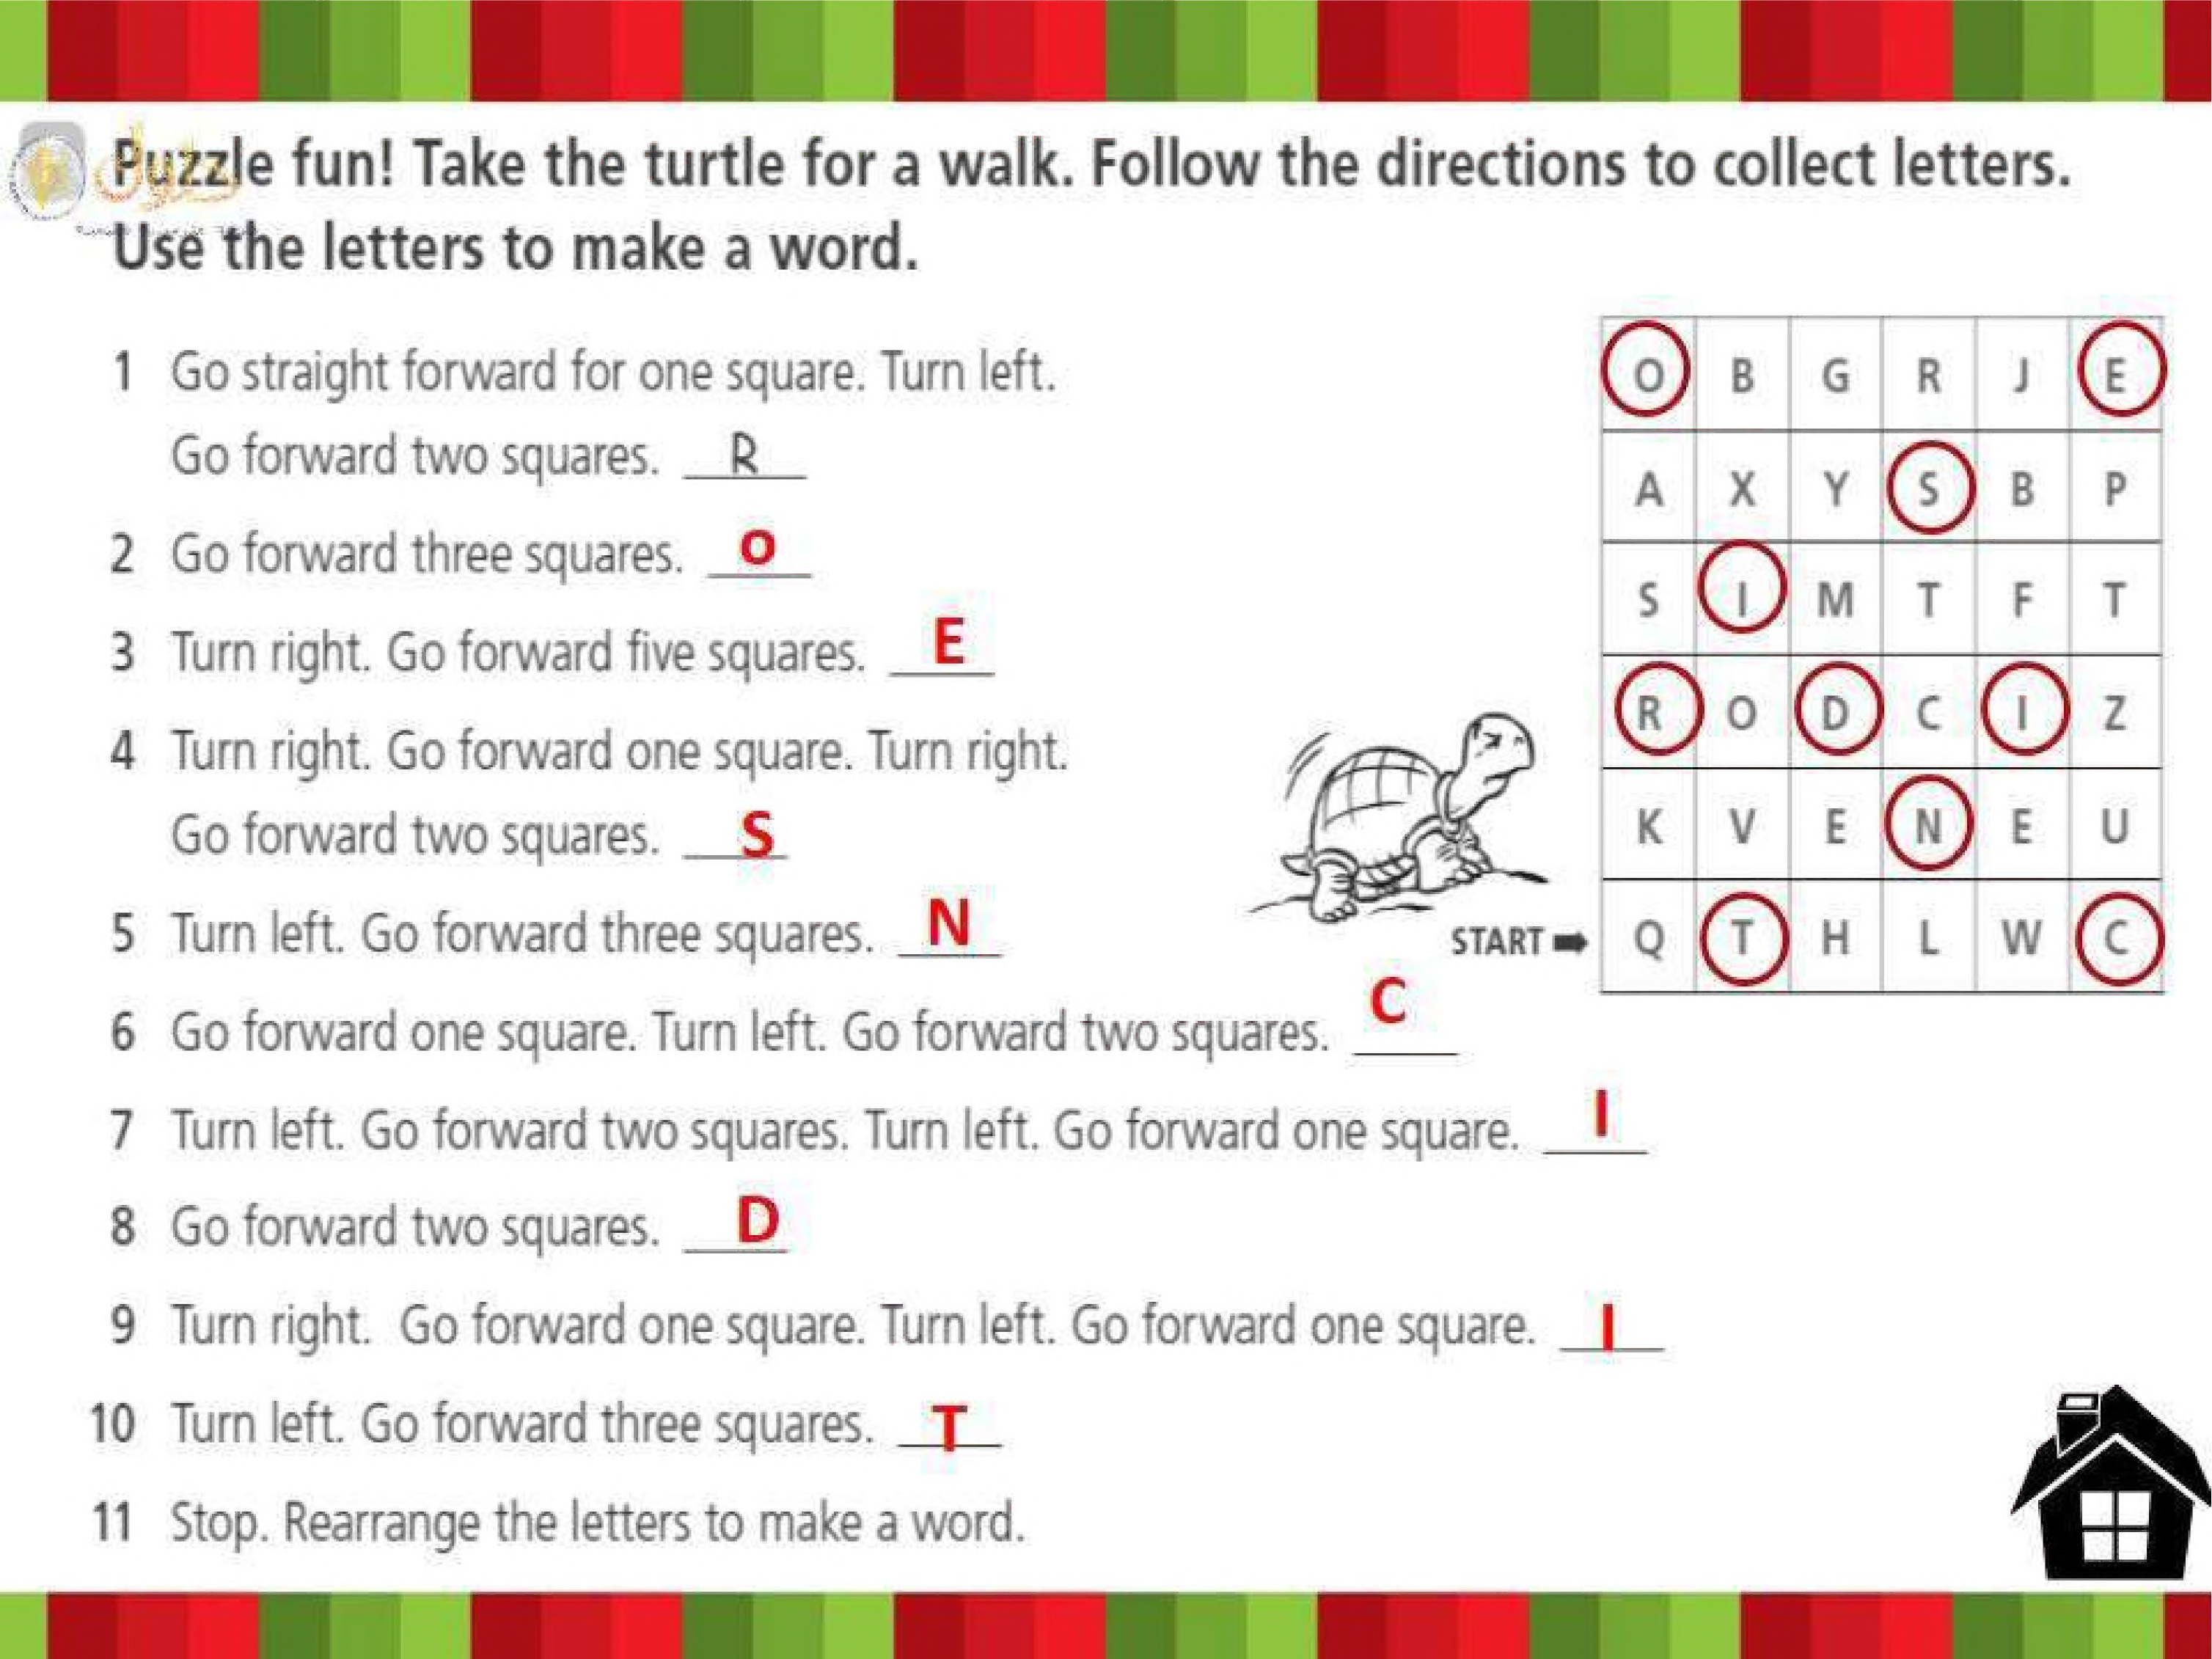 Puzzle fun! Take the turtle for a walk. Follow the directions to collect letters.
Use the letters to make a word.
1 Go straight forward for one square. Turn left.
Go forward two squares. R
2 Go forward three squares. o
3 Turn right. Go forward five squares. E
4 Turn right. Go forward one square. Turn right.
Go forward two squares. S
5 Turn left. Go forward three squares. N
6 Go forward one square. Turn left. Go forward two squares. C
7 Turn left. Go forward two squares. Turn left. Go forward one square. I
8 Go forward two squares. D
9 Turn right. Go forward one square. Turn left. Go forward one square. I
10 Turn left. Go forward three squares. T
11 Stop. Rearrange the letters to make a word.
O B G R J E
A X Y S B P
S I M T F T
R O D C I Z
K V E N E U
START ➡ Q T H L W C